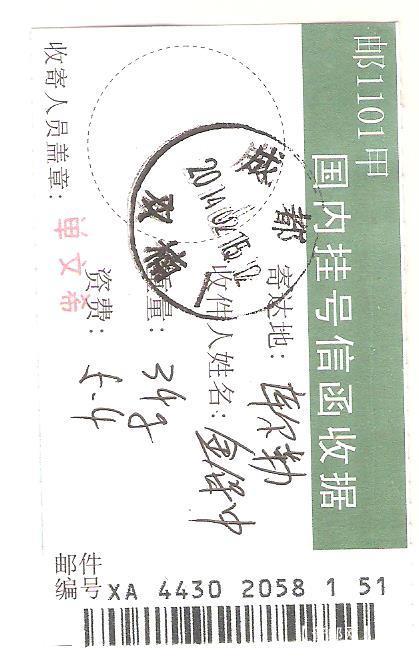 邮1101甲
国内挂号信函收据
寄达地：库尔勒
收件人姓名：
重量：34g
资费：5.4
收寄人员盖章：
单文希
成都
2014.02.15.12
双楠
邮件
编号 XA 4430 2058 1 51